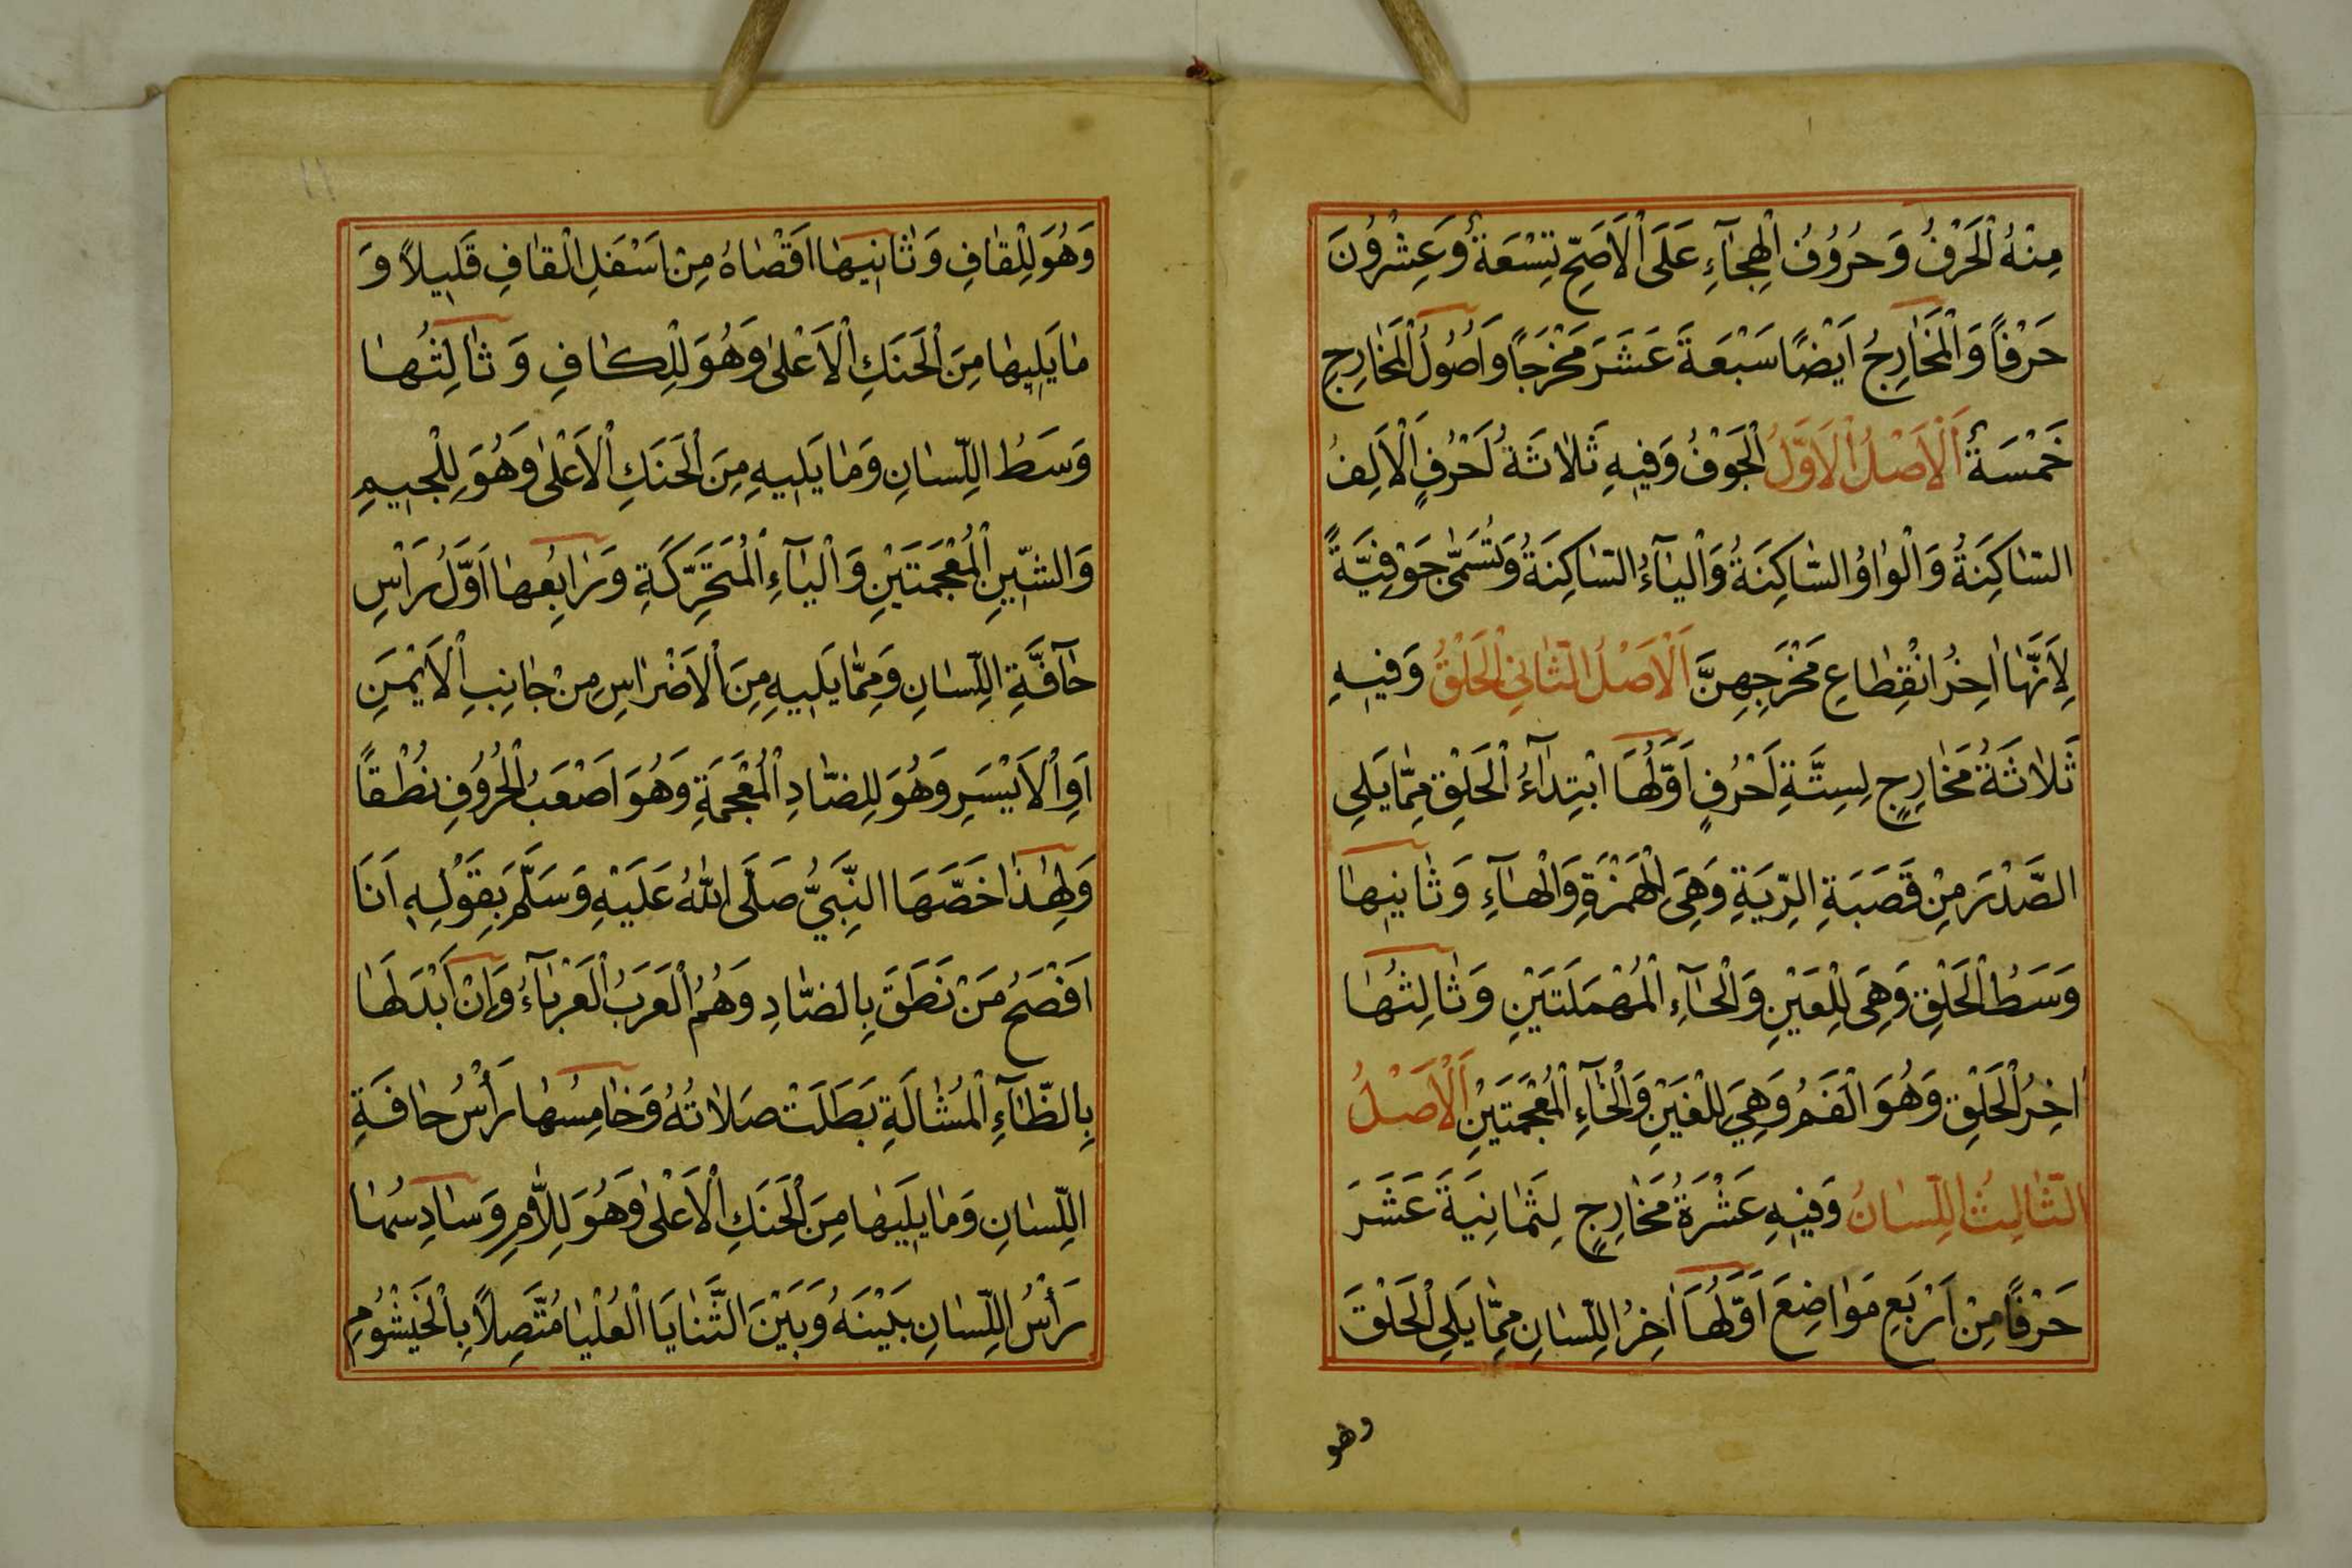 مِنْهُ الْحَرْفُ وَحُرُوُفُ الْهِجَآءِ عَلَى الْاَصَحِّ تِسْعَةٌ وَعِشْرُونَ
حَرْفاً وَالْمَخَارِجُ اَيْضًا سَبْعَةَ عَشَرَ مَخْرَجًا وَاُصُولُ الْمَخَارِجِ
خَمْسَةٌ اَلْاَصْلُ الْاَوَّلُ الْجَوْفُ وَفِيهِ ثَلَاثَةُ اَحْرُفٍ اَلْاَلِفُ
السَّاكِنَةُ وَالْوَاوُ السَّاكِنَةُ وَالْيَآءُ السَّاكِنَةُ وَتُسَمّٰى جَوْفِيَّةً
لِاَنَّهَا اٰخِرُ انْقِطَاعِ مَخْرَجِهِنَّ اَلْاَصْلُ الثَّانِي الْحَلْقُ وَفِيهِ
ثَلَاثَةُ مَخَارِجٍ لِسِتَّةِ اَحْرُفٍ اَوَّلُهَا ابْتِدَآءُ الْحَلْقِ مِمَّا يَلِي
الصَّدْرَ مِنْ قَصَبَةِ الرِّيَةِ وَهِىَ الْهَمْزَةِ وَالْهَآءِ وَثَانِيهَا
وَسَطُ الْحَلْقِ وَهِىَ لِلْعَيْنِ وَالْحَآءِ الْمُهْمَلَتَيْنِ وَثَالِثُهَا
اٰخِرُ الْحَلْقِ وَهُوَ الْفَمُ وَهِيَ لِلْغَيْنِ وَالْخَآءِ الْمُعْجَمَتَيْنِ اَلْاَصْلُ
الثَّالِثُ اللِّسَانُ وَفِيهِ عَشْرَةُ مَخَارِجٍ لِثَمَانِيَةَ عَشَرَ
حَرْفًا مِنْ اَرْبَعِ مَوَاضِعَ اَوَّلُهَا اٰخِرُ اللِّسَانِ مِمَّا يَلِى الْحَلْقَ
وهو
١١
وَهُوَ لِلْقَافِ وَثَانِيهَا اَقْصَاهُ مِنْ اَسْفَلِ الْقَافِ قَلِيلاً وَ
مَا يَلِيهَا مِنَ الْحَنَكِ الْاَعْلٰى وَهُوَ لِلْكَافِ وَثَالِثُهَا
وَسَطُ اللِّسَانِ وَمَا يَلِيهِ مِنَ الْحَنَكِ الْاَعْلٰى وَهُوَ لِلْجِيمِ
وَالشِّينِ الْمُعْجَمَتَيْنِ وَالْيَآءِ الْمُتَحَرِّكَةِ وَرَابِعُهَا اَوَّلُ رَأْسِ
حَآفَّةِ اللِّسَانِ وَمِمَّا يَلِيهِ مِنَ الْاَضْرَاسِ مِنْ جَانِبِ الْاَيْمَنِ
اَوِ الْاَيْسَرِ وَهُوَ لِلضَّادِ الْمُعْجَمَةِ وَهُوَ اَصْعَبُ الْحُرُوفِ نُطْقاً
وَلِهٰذَا خَصَّهَا النَّبِيُّ صَلَّى اللّٰهُ عَلَيْهِ وَسَلَّمَ بِقَوْلِهِ اَنَا
اَفْصَحُ مَنْ نَطَقَ بِالضَّادِ وَهُمُ الْعَرَبُ الْعَرْبَآءُ وَاِنْ اَبْدَلَهَا
بِالظَّآءِ الْمُشَالَةِ بَطَلَتْ صَلَاتُهُ وَخَامِسُهَا رَأْسُ حَافَةِ
اللِّسَانِ وَمَا يَلِيهَا مِنَ الْحَنَكِ الْاَعْلٰى وَهُوَ لِلَّامِ وَسَادِسُهَا
رَأْسُ اللِّسَانِ بَيْنَهُ وَبَيْنَ الثَّنَايَا الْعُلْيَا مُتَّصِلاً بِالْخَيْشُومِ